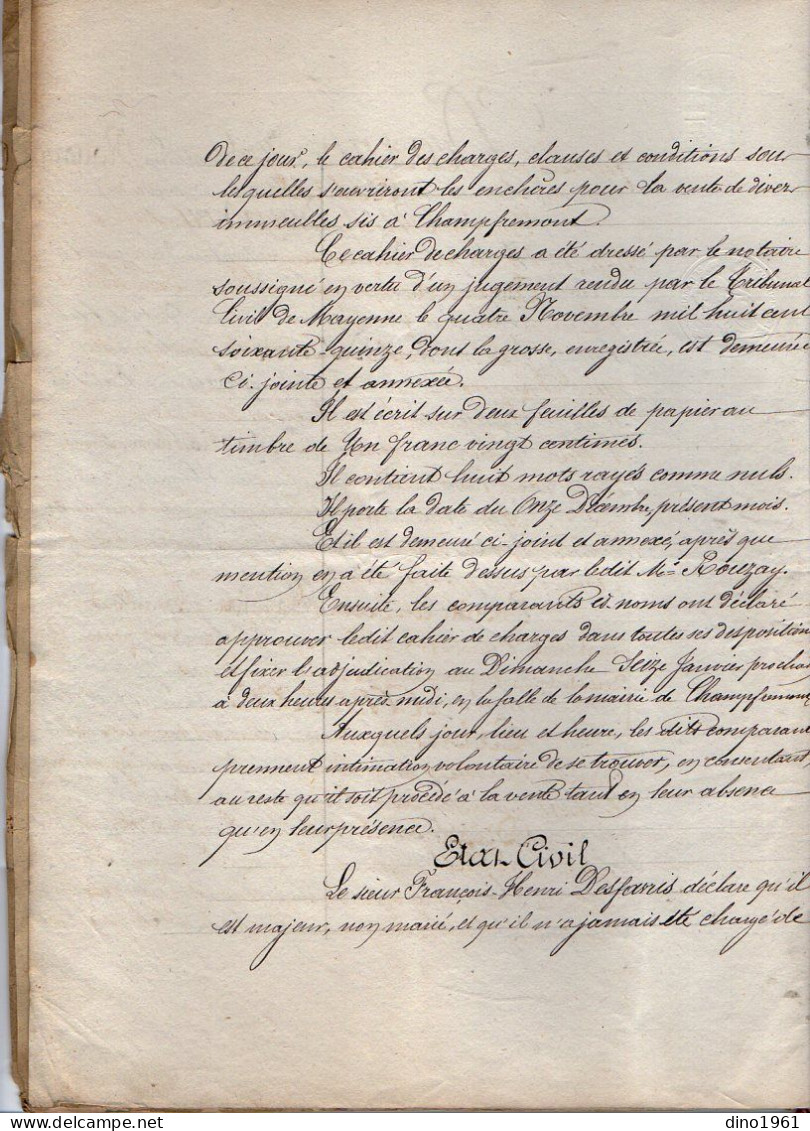 De ce jour, le cahier des charges, clauses et conditions sour
lesquelles s'ouvriront les enchères pour la vente de divers
immeubles sis à Champfremont.
Ce cahier de charges a été dressé par le notaire
soussigné en vertu d'un jugement rendu par le Tribunal
Civil de Mayenne le quatre Novembre mil huit cent
soixante-quinze, dont la grosse, enregistrée, est demeurée
ci-jointe et annexée.
Il est écrit sur deux feuilles de papier au
timbre de Un franc vingt centimes.
Il contient huit mots rayés comme nuls.
Il porte la date du Onze Décembre, présent mois.
Et il est demeuré ci-joint et annexé, après que
mention en a été faite dessus par ledit Me Rouzay.
Ensuite, les comparants és-noms ont déclaré
approuver ledit cahier de charges dans toutes ses disposition
et fixer l'adjudication au Dimanche Seize Janvier prochain
à deux heures après midi, en la salle de la mairie de Champfremont
Auxquels jour, lieu et heure, les dits comparant
prennent intimation volontaire de se trouver, en consentant,
au reste qu'il soit procédé à la vente tant en leur absence
qu'en leur présence.
Etat-Civil
Le sieur François-Henri Desfarris déclare qu'il
est majeur, non marié, et qu'il n'a jamais été chargé de
dino1961